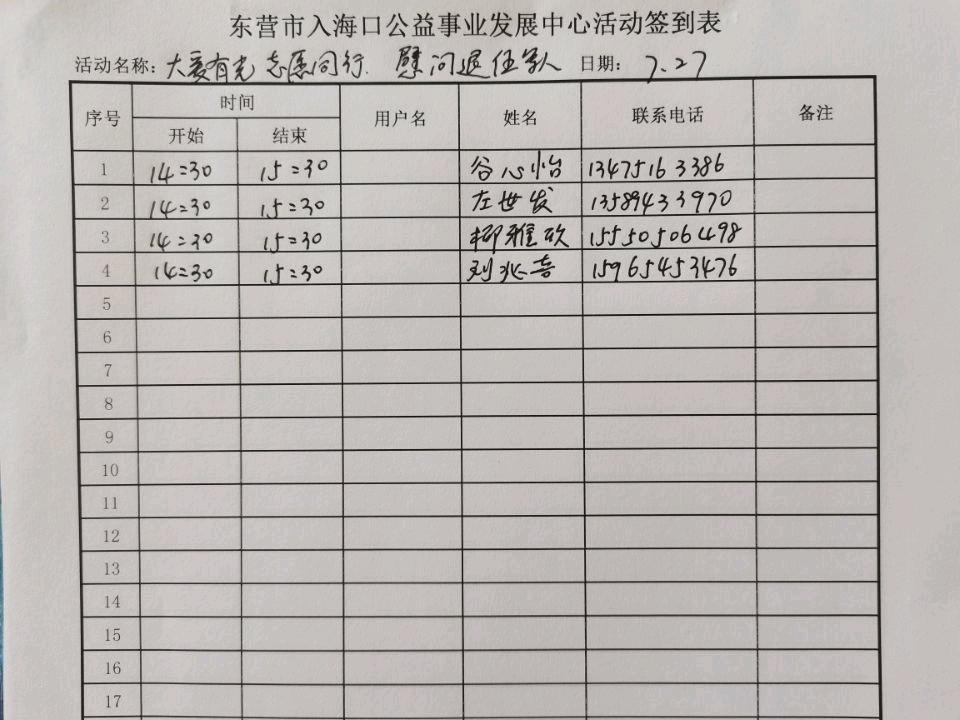 东营市入海口公益事业发展中心活动签到表
活动名称：大爱有光 志愿同行 慰问退伍军人 日期：7.27
序号 时间 用户名 姓名 联系电话 备注
开始 结束
1 14:30 15:30 谷心怡 13475163386
2 14:30 15:30 左世发 13589433970
3 14:30 15:30 柳雅欣 15550506498
4 14:30 15:30 刘兆喜 15965453476
5
6
7
8
9
10
11
12
13
14
15
16
17